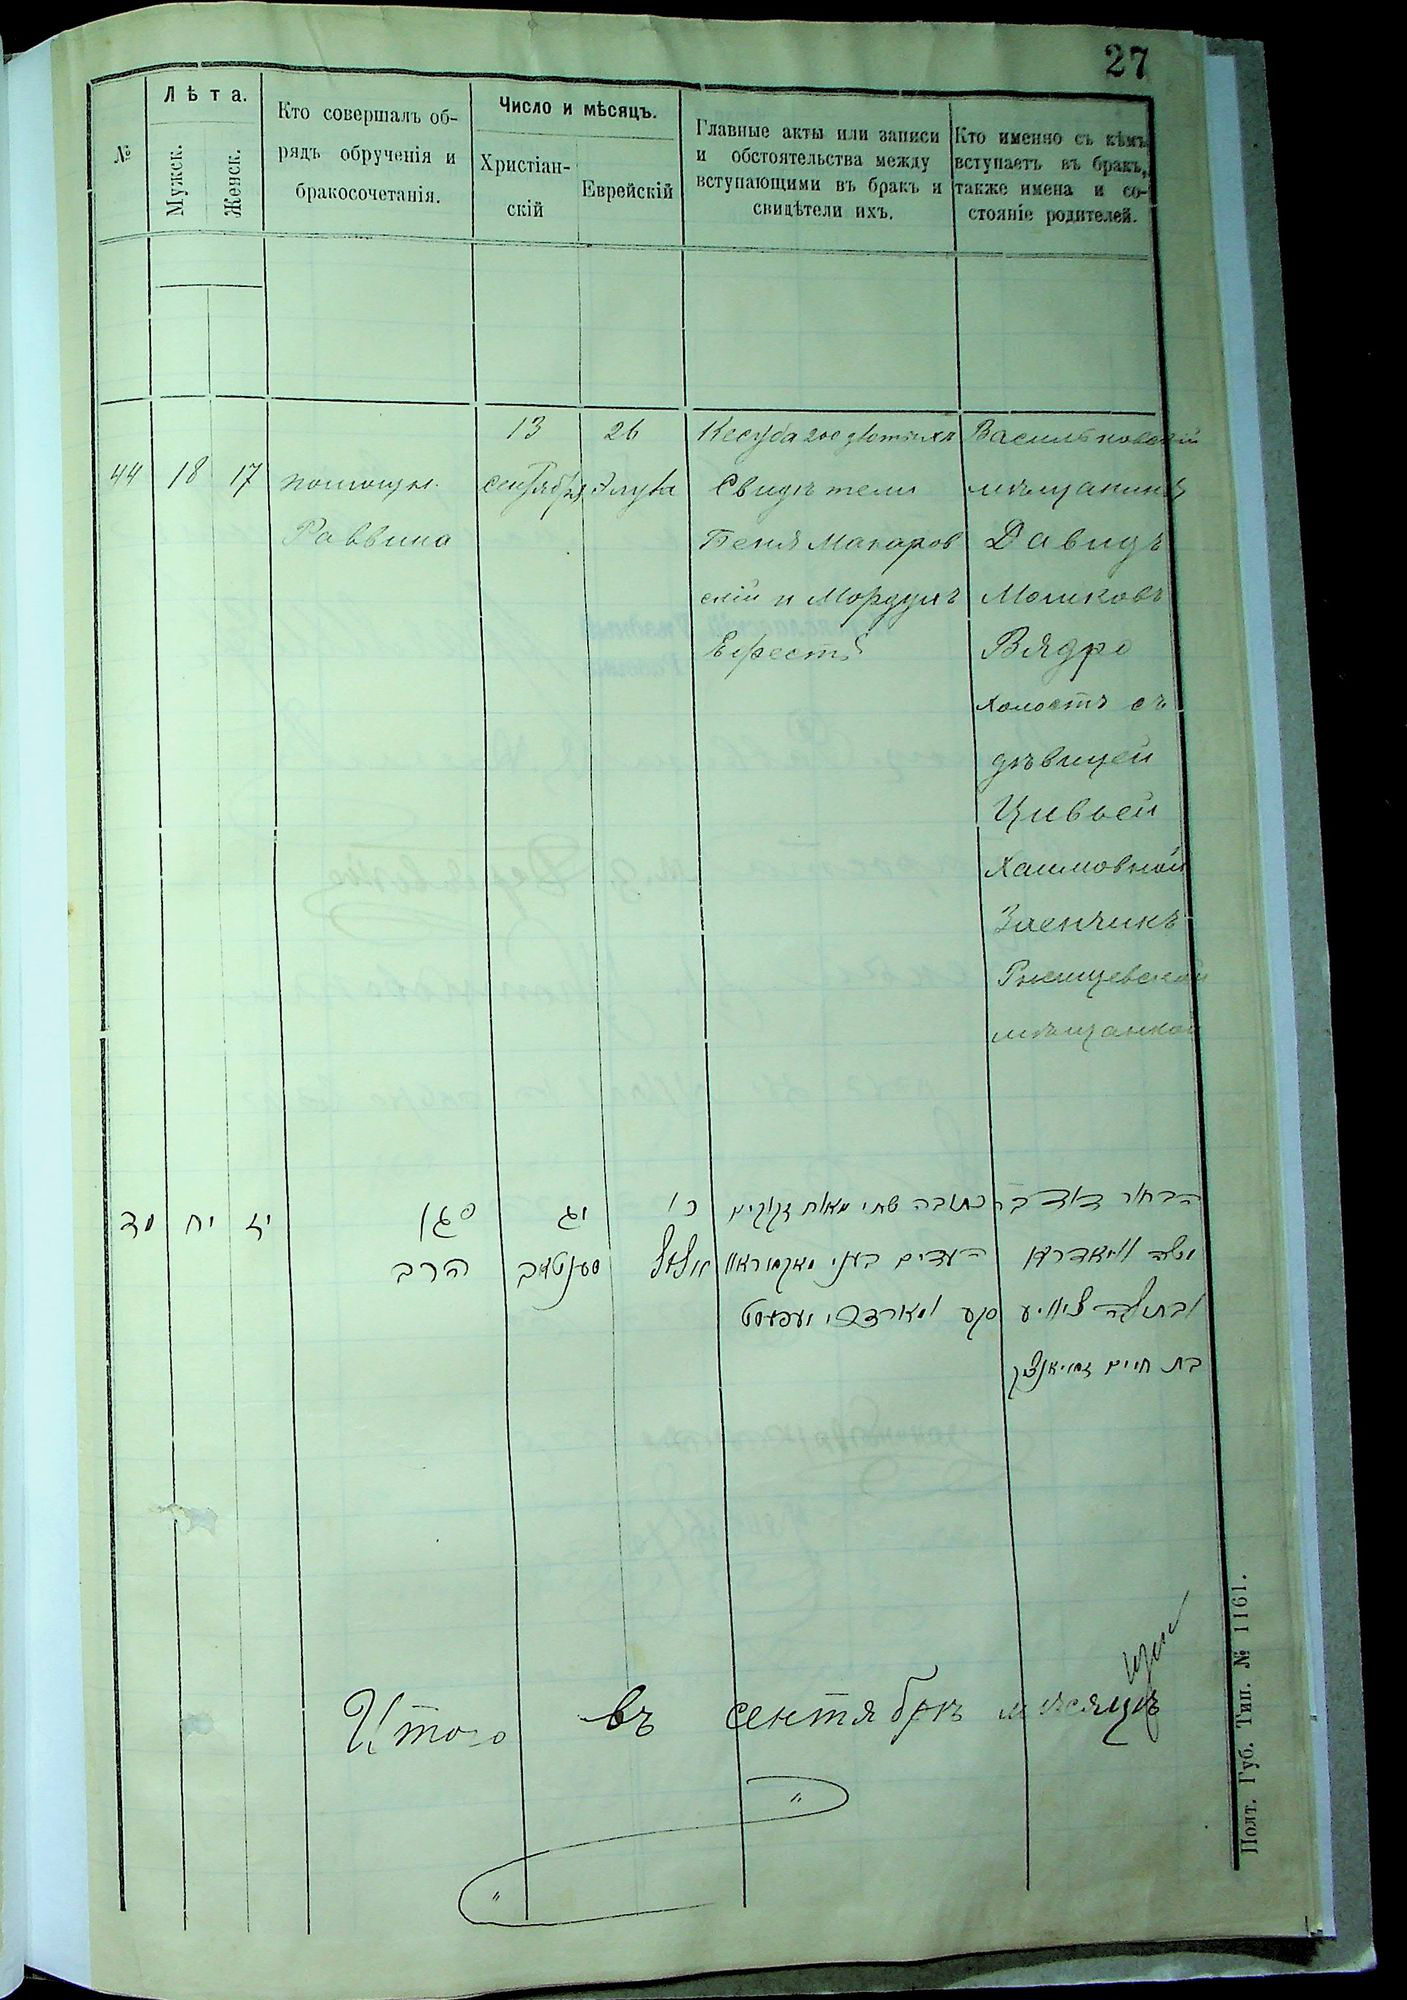 27
№
Лѣта.
Мужск.
Женск.
Кто совершалъ об-
рядъ обрученія и
бракосочетанія.
Число и мѣсяцъ.
Христіан-
скій
Еврейскій
Главные акты или записи
и обстоятельства между
вступающими въ бракъ и
свидѣтели ихъ.
Кто именно съ кѣмъ
вступаетъ въ бракъ,
также имена и со-
стояніе родителей.
44
18
17
помощн.
Раввина
13
сентября
26
Элула
Кесуба 200 злотыхъ
Свидѣтели
Беня Макаров
скій и Мордухъ
Васильковскій
мѣщанинъ
Давидъ
Мошковъ
Вядро
холостъ съ
дѣвицей
Цивьей
Хаимовной
Заенчикъ
Ржищевской
мѣщанкой
מד
יח
יז
סגן
הרב
יג
סענטאב
כו
אלול
כתובה שתי מאות זקוקים
העדים בעני מאקאראוו
סקע
הבחור דוד בר
משה וויאדרא
ובתולה ציוויע
בת חיים
Итого въ сентябрѣ мѣсяцѣ
Полт. Губ. Тип. № 1161.